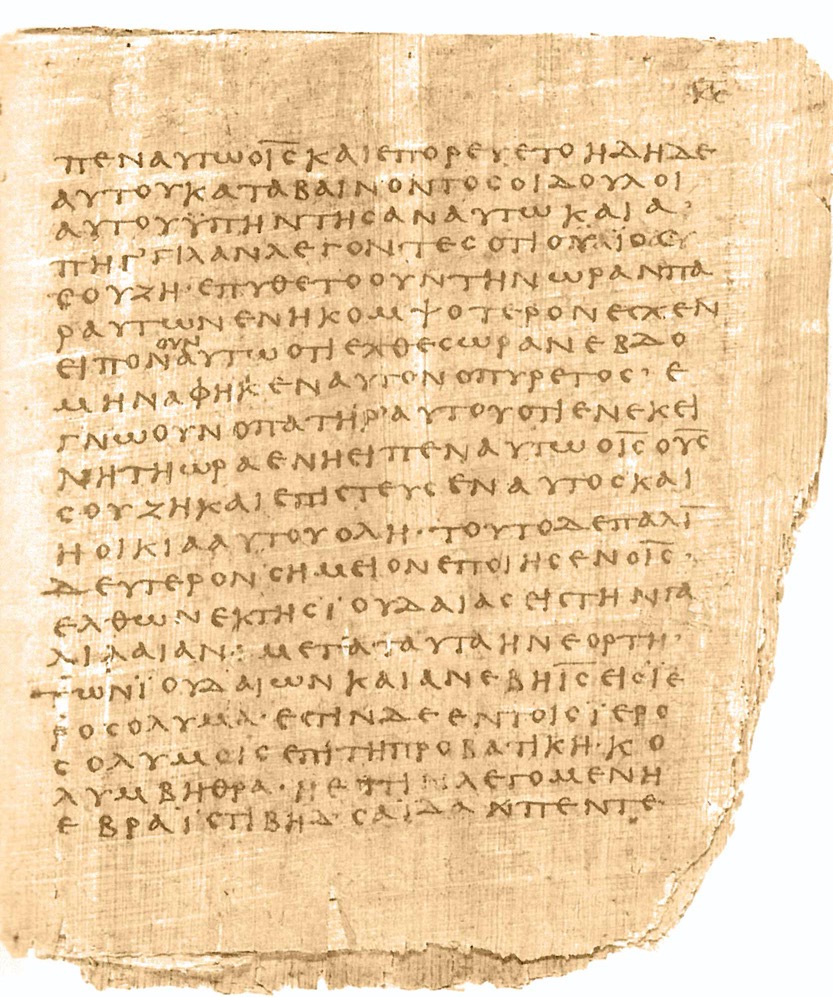 κε
πεναυτωοι̅ς̅καιεπορευετοηδηδε
αυτουκαταβαινοντοςοιδουλοι
αυτουϋπηντησαναυτωκαια·
πηγ᾽γιλανλεγοντεςοτιο
εουζη·επυθετοουντηνωρανπα
ραυτωνενηκομψοτερονεσχεν
ειπον`ουν´αυτωοτιεχθεςωρανεβδο
μηναφηκεναυτονοπυρετος·ε
γνωουνοπατηρ᾽αυτουοτιενεκει
νητηωραενηειπεναυτωοι̅ς̅οϋ̅ς̅
σουζηκαιεπιστευσεναυτοςκαι
ηοικιααυτουολη·τουτοδεπαλι̅
δευτερονσημειονεποιησενοι̅ς̅·
ελθωνεκτηςϊουδαιαςειςτηνγα
λιλαιαν:μεταταυταηνεορτη·
τωνϊουδαιωνκαιανεβηι̅ς̅ειςϊε
ροσολυμα·εστινδεεντοιςϊερο
σολυμοιςεπιτηπροβατικη·κο
λυμβηθρα·ηεστινλεγομενη
εβραϊστιβηδ᾽σαϊδανπεντε